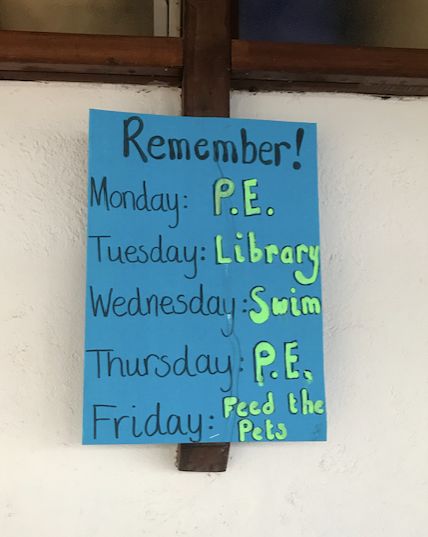 Remember!
Monday: P.E.
Tuesday: Library
Wednesday: Swim
Thursday: P.E.
Friday: Feed the
Pets